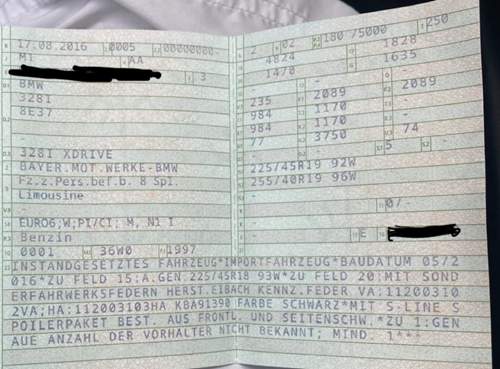 B 17.08.2016 0005 00000000-
M1 AA
3
BMW
328I
8E37
-
D.3 328I XDRIVE
2 BAYER.MOT.WERKE-BMW
5 Fz.z.Pers.bef.b. 8 Spl.
Limousine
V.9 -
14 EURO6;W;PI/CI; M, N1 I
P.3 Benzin
10 0001 36W0 1997
2 02 180 /5000 250
4824 1828
1470 1635
- -
235 2089 2089
984 1170 -
984 1170 -
77 3750 74
- - 5 -
225/45R19 92W
255/40R19 96W
-
- 0/-
- E
22 INSTANDGESETZTES FAHRZEUG*IMPORTFAHRZEUG*BAUDATUM 05/2
016*ZU FELD 15:A.GEN.225/45R18 93W*ZU FELD 20:MIT SOND
ERFAHRWERKSFEDERN HERST.EIBACH KENNZ.FEDER VA:11200310
2VA;HA:112003103HA KBA91390 FARBE SCHWARZ*MIT S-LINE S
POILERPAKET BEST. AUS FRONTL. UND SEITENSCHW.*ZU 1:GEN
AUE ANZAHL DER VORHALTER NICHT BEKANNT; MIND. 1***